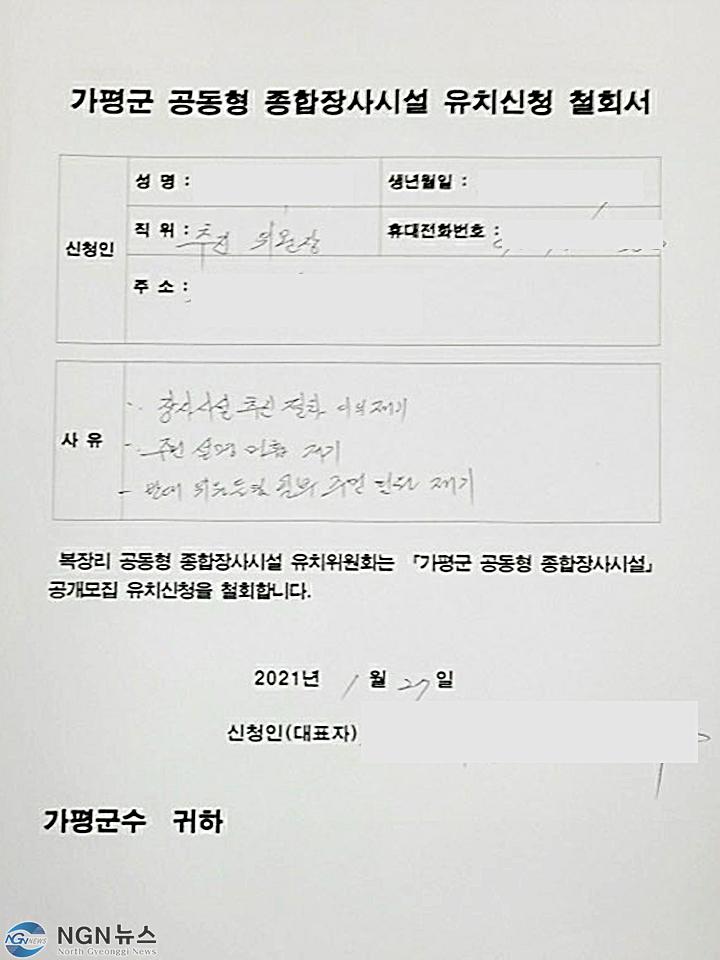 가평군 공동형 종합장사시설 유치신청 철회서
신청인
성 명 :
생년월일 :
직 위 : 추진 위원장
휴대전화번호 :
주 소 :
사 유
장사시설 추진 절차 이의제기
- 주민 설명 미흡 제기
- 반대 주민 제기
복장리 공동형 종합장사시설 유치위원회는 「가평군 공동형 종합장사시설」
공개모집 유치신청을 철회합니다.
2021년 1월 27일
신청인(대표자)
가평군수 귀하
NGN뉴스
North Gyeonggi News